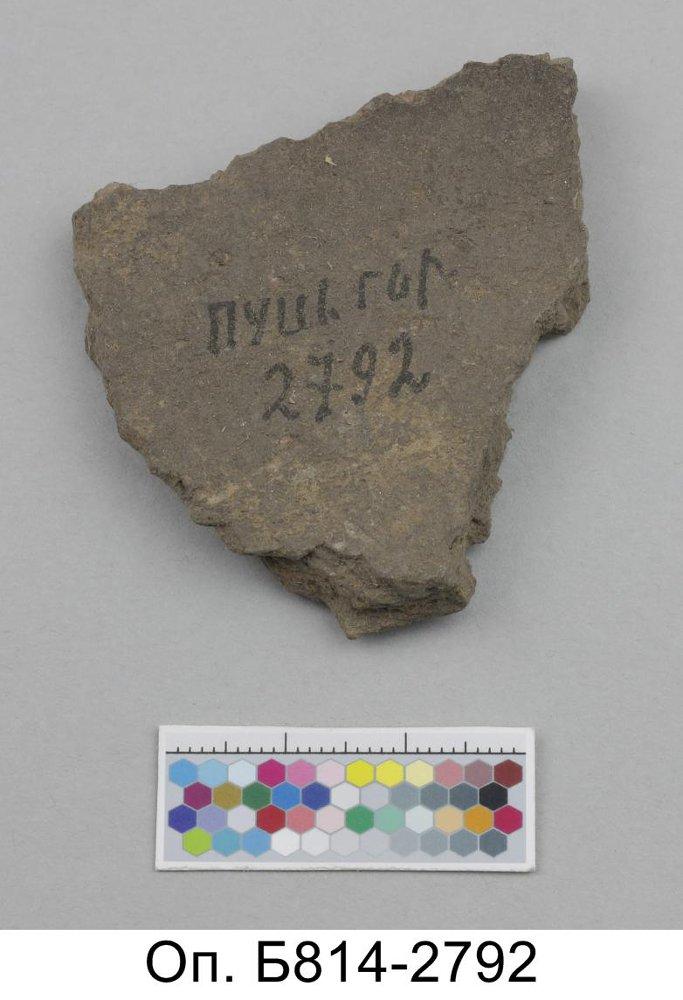 ПУШ. ГОР
2792
Оп. Б814-2792